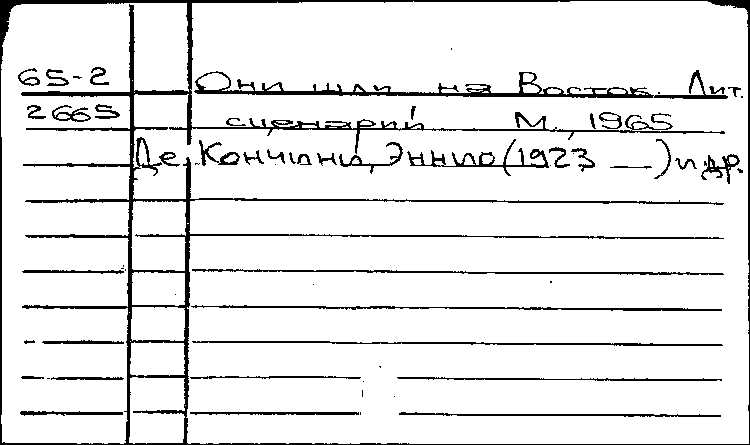 65-2 Они шли на Восток. Лит.
2665 сценарий М., 1965
Де Кончини, Эннио (1923 — ) и др.